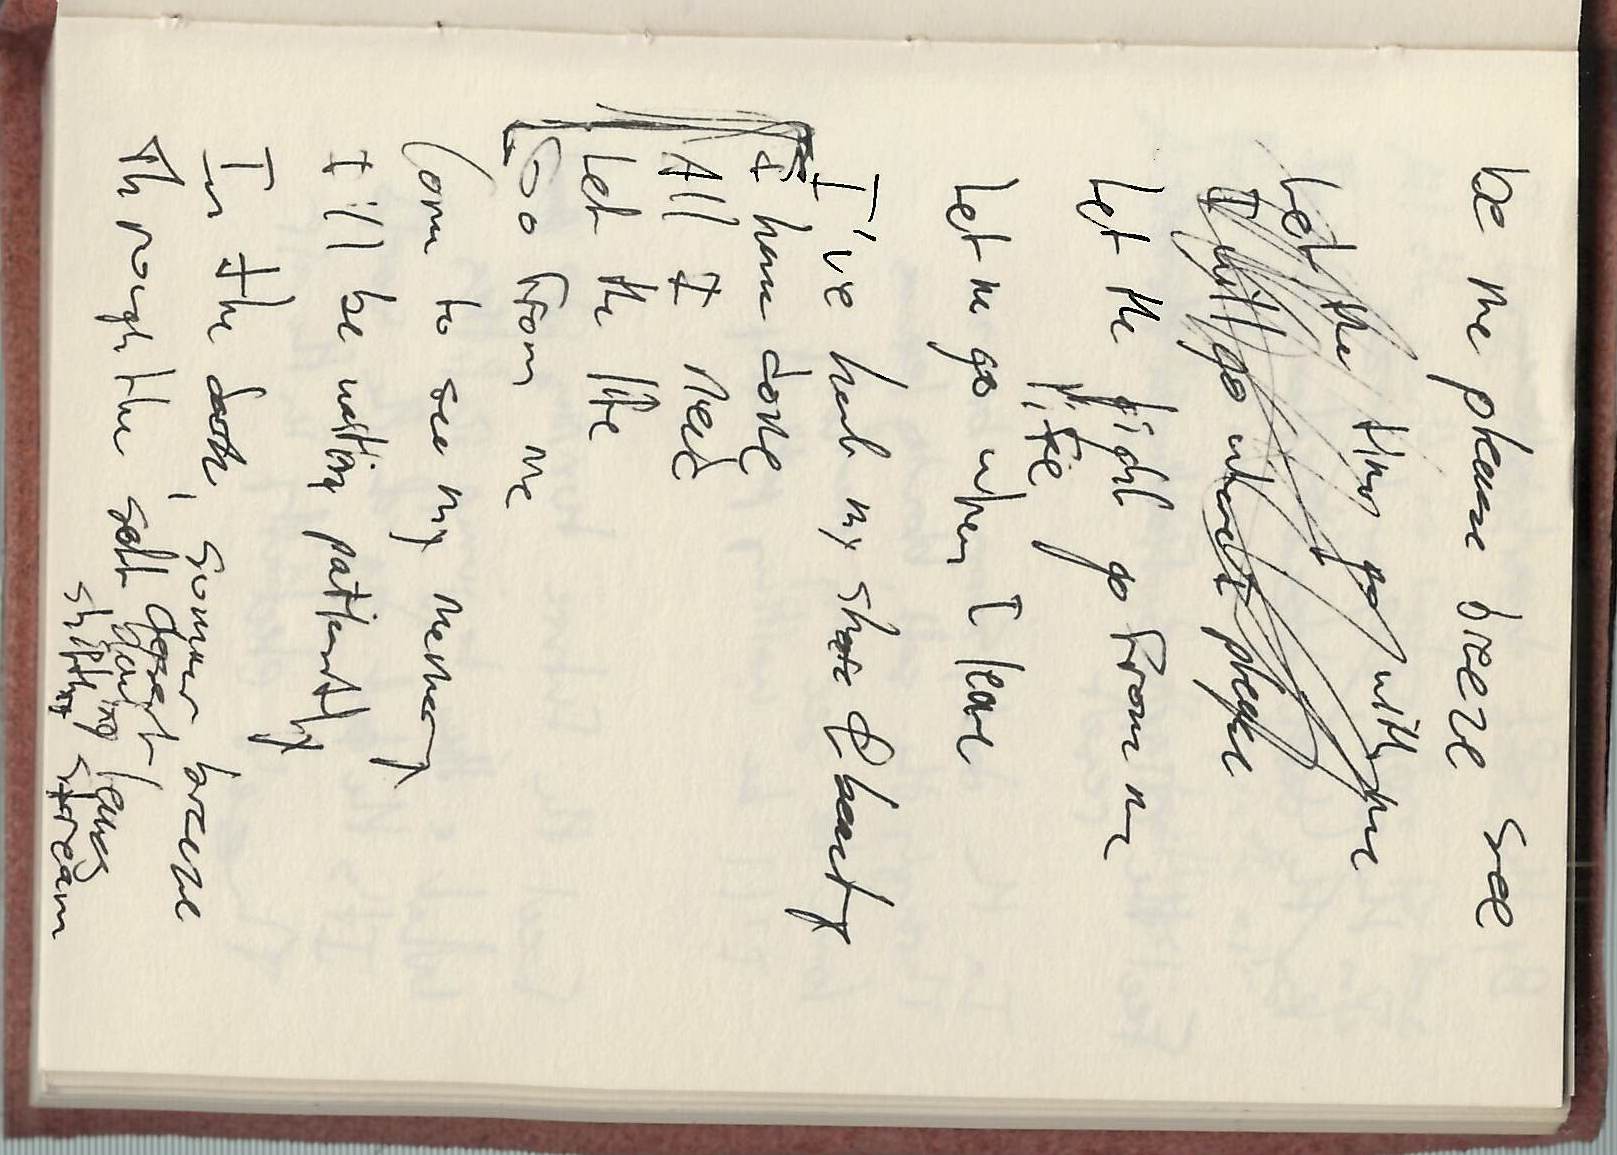 be me please breeze see
Let the time go with me
I will go without people
Let the light go from me
life
Let me go when I leave
I've had my share of beauty
I have done
All I need
Let the life
Go from me
Come to see my memory
I'll be waiting patiently
In the dark, summer breeze
Through the soft desert leaves
shifting stream